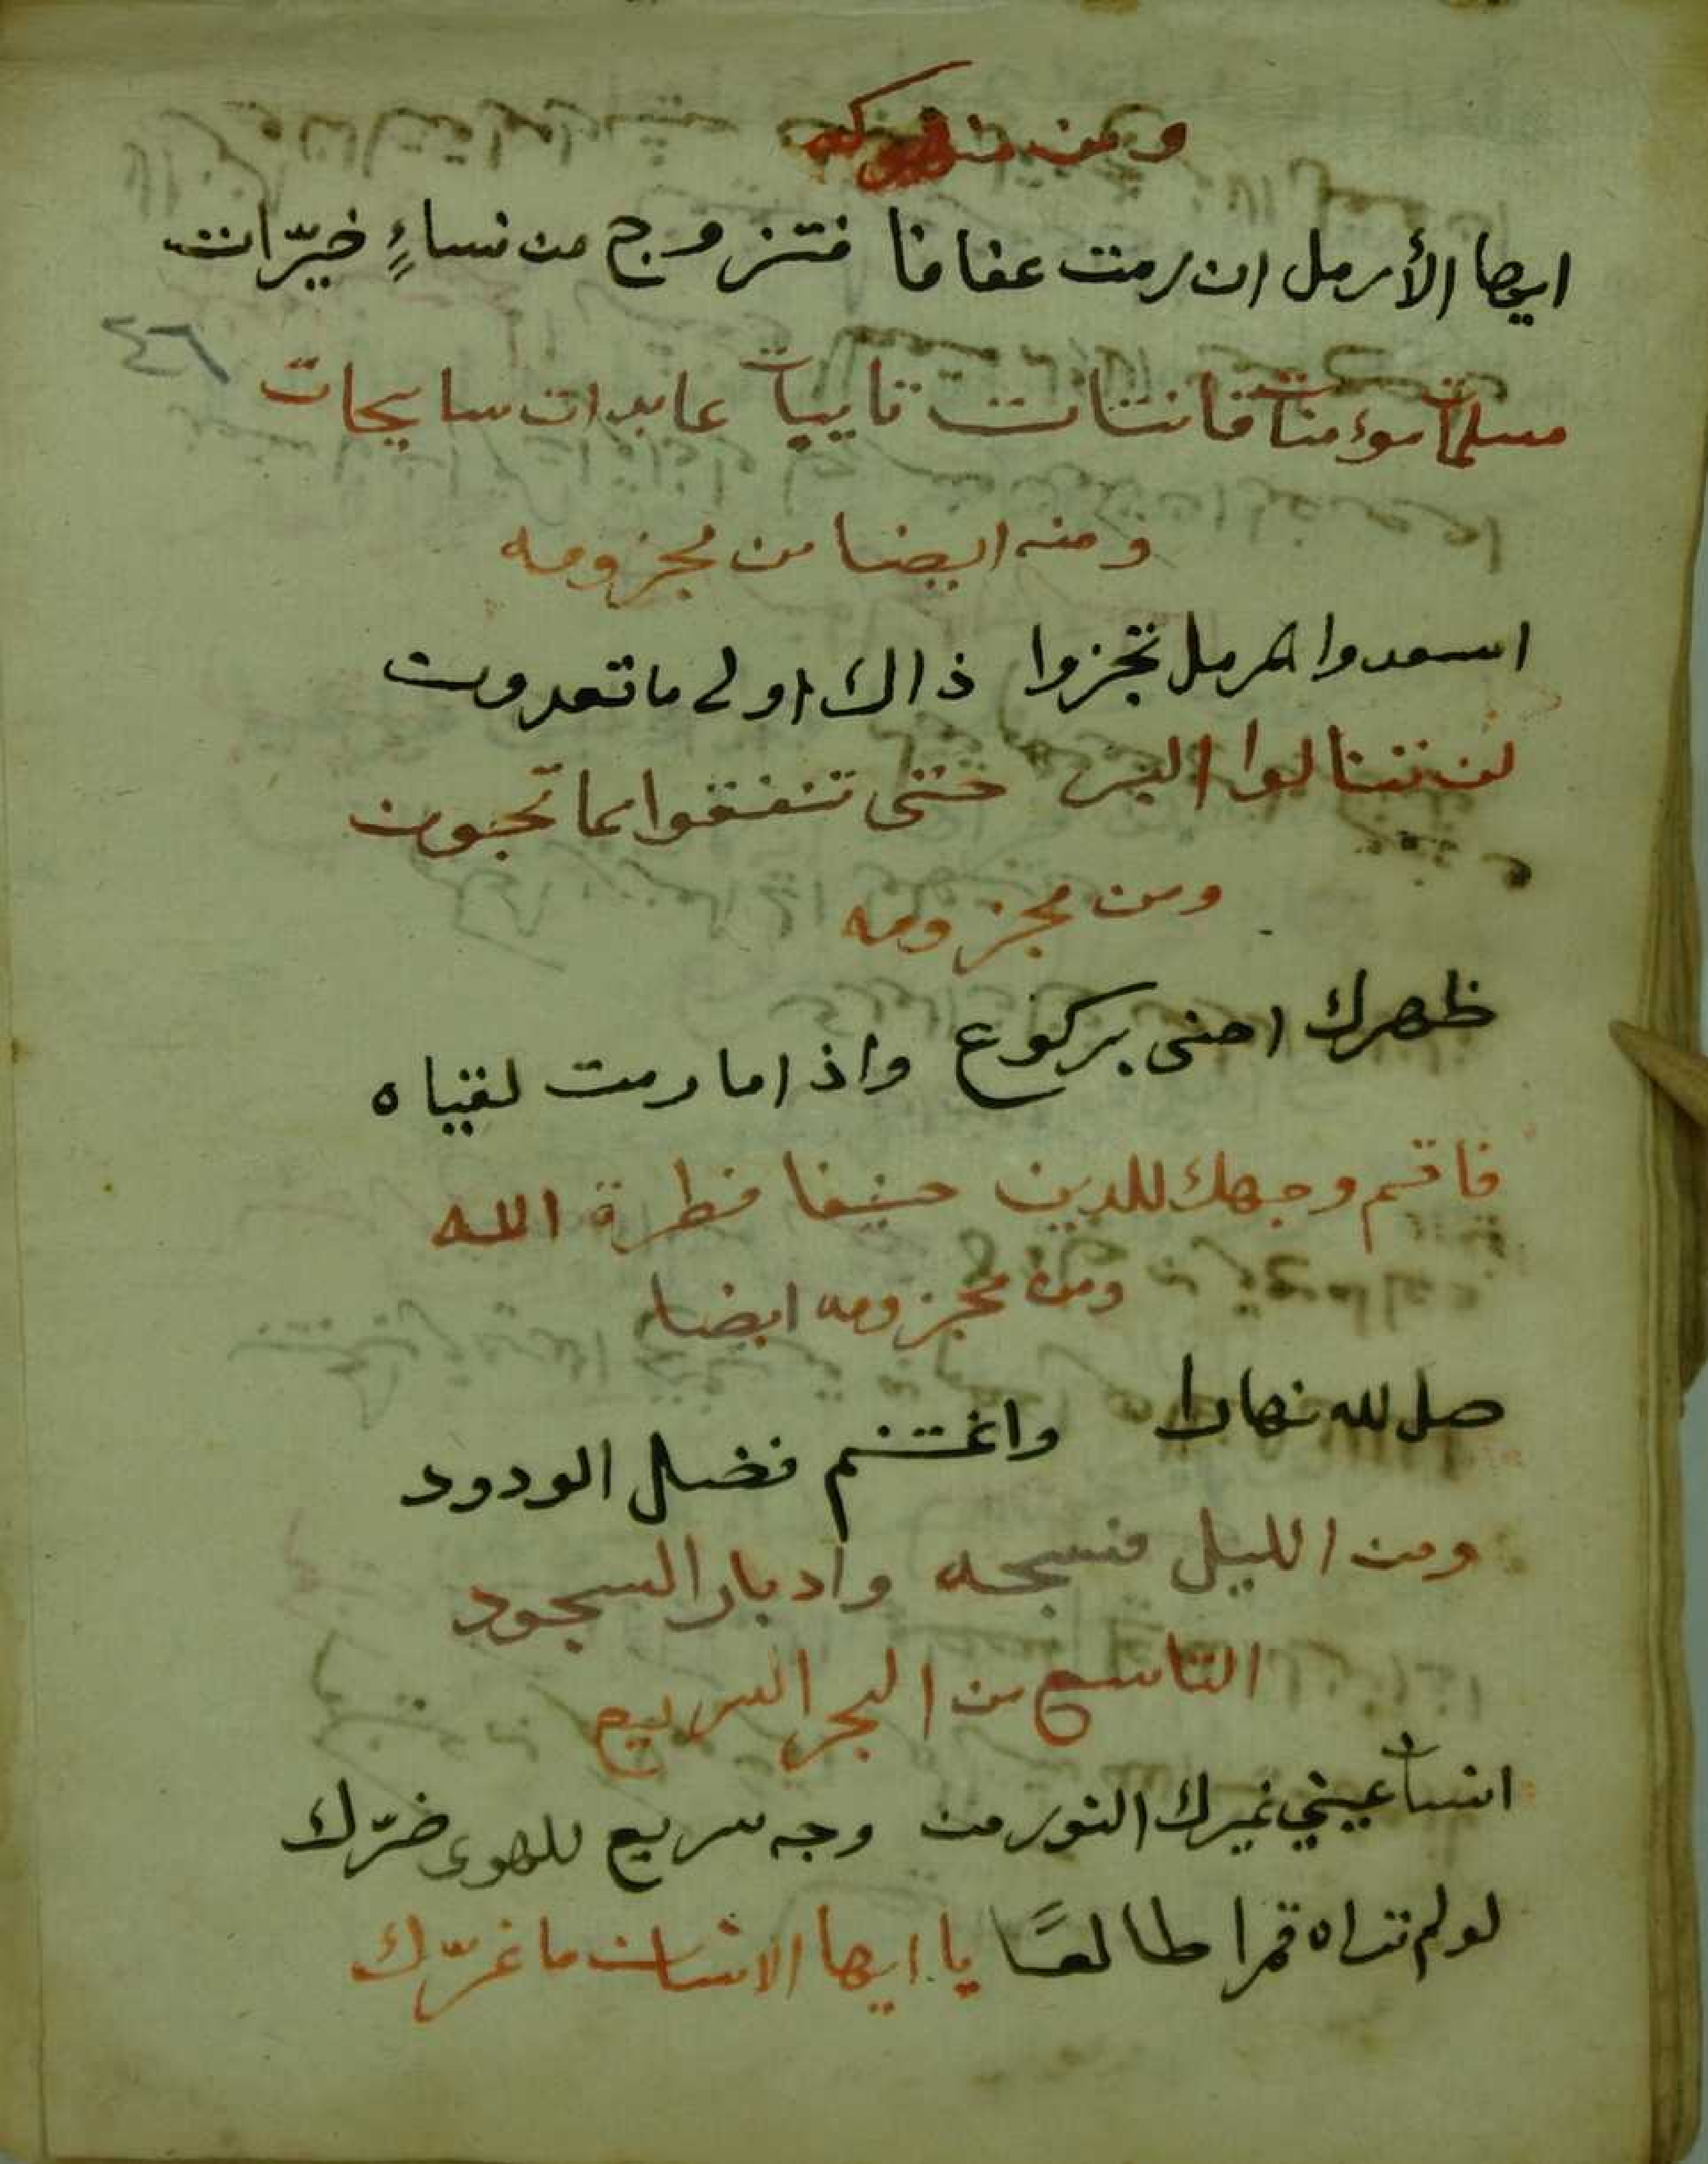 ومن
ايها الأرمل ان رمت عفافا فتزوج من نساءٍ خيّرات
٤٦
مسلمات موءمنات قانتات تايبات عابدات سايحات
ومنه ايضا من مجزومه
اسعدوا المرمل تجزوا ذاك اولى ما تعدون
لن تنالوا البر حتى تنفقوا مما تحبون
ومن مجزومه
ظهرك احنى بركوع واذا ما رمت لقياه
فاقم وجهك للدين حنيفا فطرة الله
ومن مجزومه ايضا
صل لله نهارا واغتنم فضل الودود
ومن الليل فسبحه وادبار السجود
التاسع من البحر السريع
انسان عيني غيرك النور من وجه سريع للهوى ضرّك
لو لم تراه قمرا طالعًا يا ايها الانسان ما غرّك